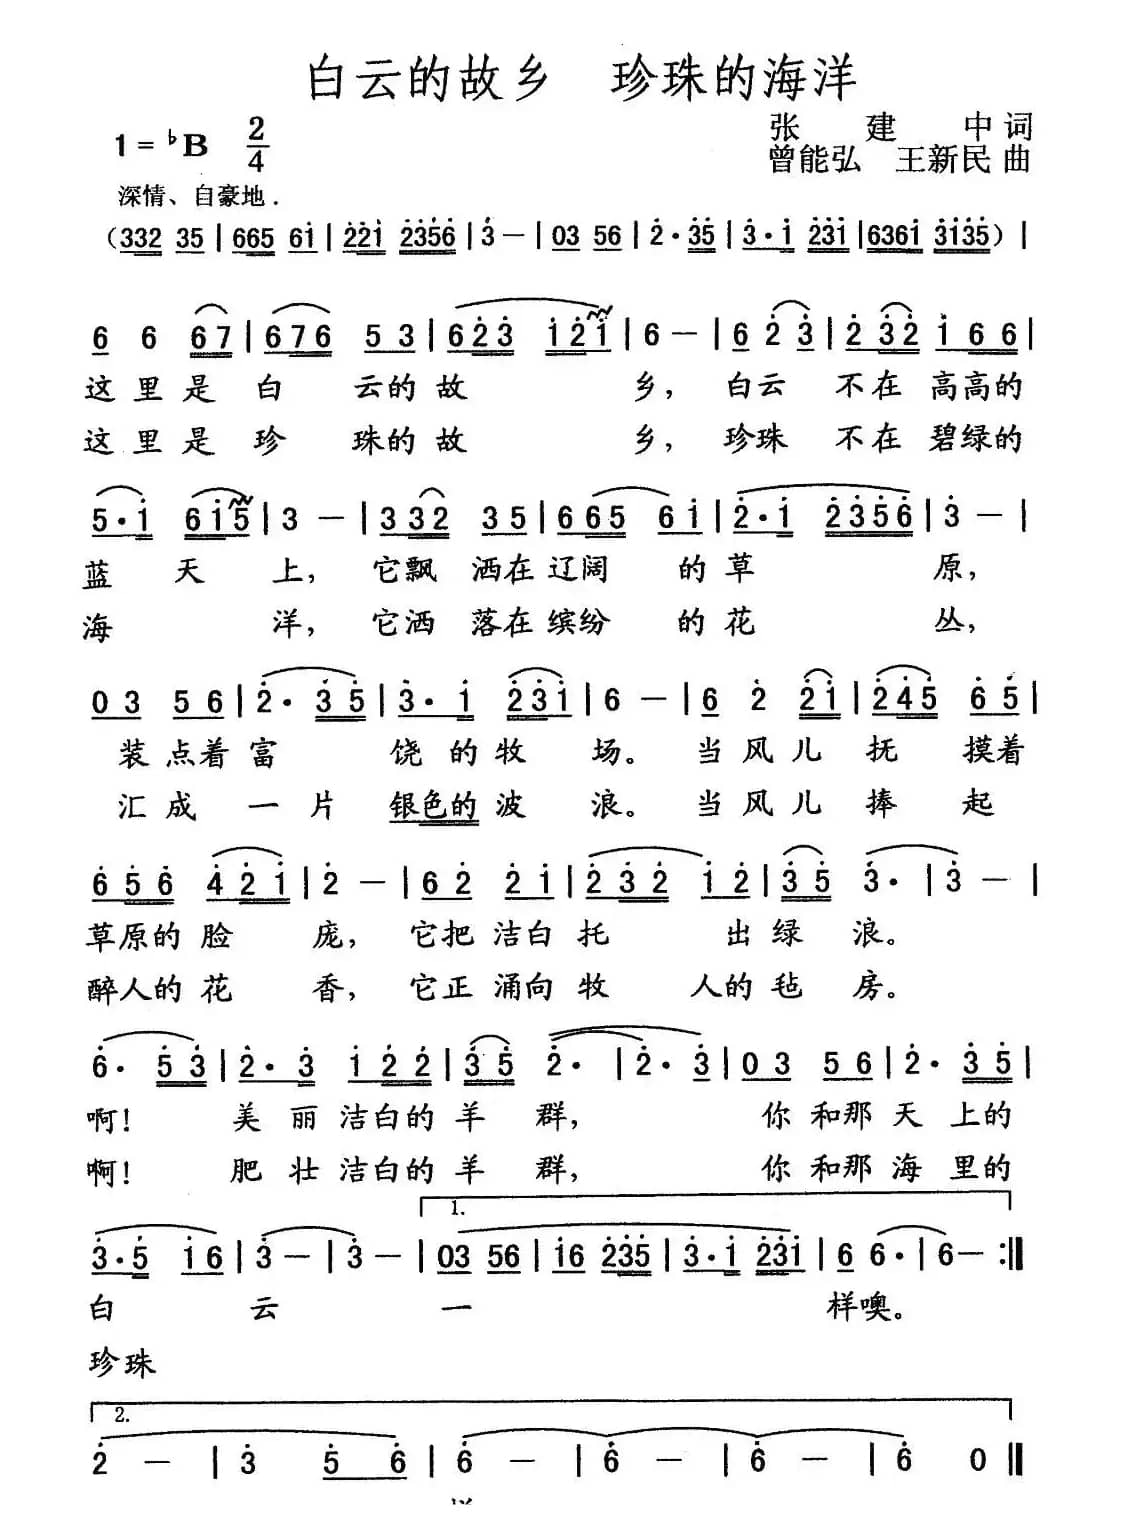 白云的故乡　珍珠的海洋
1 = ♭B 2/4
张建中词
曾能弘　王新民曲
深情、自豪地.
(332 35 | 665 61̇ | 2̇2̇1̇ 2̇3̇5̇6̇ | 3̇ — | 03 56 | 2̇· 3̇5̇ | 3̇· 1̇ 2̇3̇1̇ | 6361̇ 3̇1̇3̇5̇) |
6 6 67 | 676 53 | 62̇3̇ 1̇2̇1̇ | 6 — | 6 2̇ 3̇ | 2̇ 3̇2̇ 1̇66 |
这里是白云的故乡，白云不在高高的
这里是珍珠的故乡，珍珠不在碧绿的
5·1̇ 61̇5 | 3 — | 332 35 | 665 61̇ | 2̇·1̇ 2̇3̇5̇6̇ | 3̇ — |
蓝天上，它飘洒在辽阔的草原，
海洋，它洒落在缤纷的花丛，
03 56 | 2̇· 3̇5̇ | 3̇· 1̇ 2̇3̇1̇ | 6 — | 6 2̇ 2̇1̇ | 2̇4̇5̇ 6̇5̇ |
装点着富饶的牧场。当风儿抚摸着
汇成一片银色的波浪。当风儿捧起
6̇5̇6̇ 4̇2̇1̇ | 2̇ — | 62̇ 2̇1̇ | 2̇3̇2̇ 1̇2̇ | 3̇5̇ 3̇· | 3̇ — |
草原的脸庞，它把洁白托出绿浪。
醉人的花香，它正涌向牧人的毡房。
6̇· 5̇3̇ | 2̇· 3̇ 1̇2̇2̇ | 3̇5̇ 2̇· | 2̇· 3̇ | 03 56 | 2̇· 3̇5̇ |
啊！美丽洁白的羊群，你和那天上的
啊！肥壮洁白的羊群，你和那海里的
1.
3̇·5̇ 1̇6 | 3̇ — | 3̇ — | 03 56 | 1̇6 2̇3̇5̇ | 3̇·1̇ 2̇3̇1̇ | 6 6· | 6 — :‖
白云一样噢。
珍珠
2.
2̇ — | 3̇ 5̇ 6̇ | 6̇ — | 6̇ — | 6̇ — | 6̇ 0 ‖